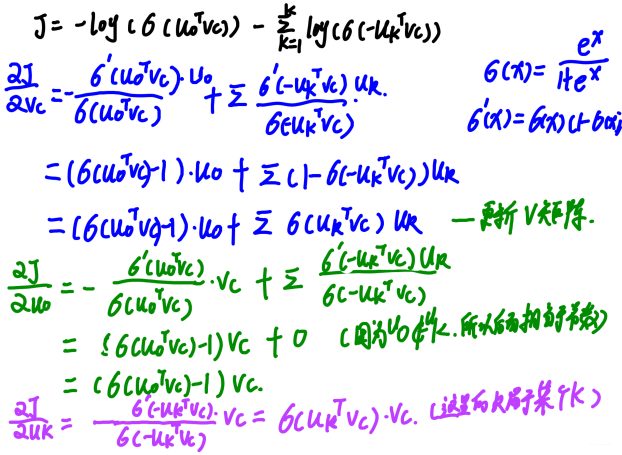 J = -log(σ(u₀ᵀv_c)) - Σ_{k=1}^{K} log(σ(-u_kᵀv_c))
∂J/∂v_c = - σ'(u₀ᵀv_c)·u₀ / σ(u₀ᵀv_c) + Σ σ'(-u_kᵀv_c)·u_k / σ(-u_kᵀv_c).
σ(x) = eˣ / (1+eˣ)
σ'(x) = σ(x)(1-σ(x))
= (σ(u₀ᵀv_c)-1)·u₀ + Σ (1-σ(-u_kᵀv_c)) u_k
= (σ(u₀ᵀv_c)-1)·u₀ + Σ σ(u_kᵀv_c) u_k — 更新 V矩阵.
∂J/∂u₀ = - σ'(u₀ᵀv_c) / σ(u₀ᵀv_c) · v_c + Σ σ'(-u_kᵀv_c) u_k / σ(-u_kᵀv_c)
= (σ(u₀ᵀv_c)-1) v_c + 0 (因为 u₀∉u_k. 所以后面相当于常数)
= (σ(u₀ᵀv_c)-1) v_c.
∂J/∂u_k = σ'(-u_kᵀv_c)· / σ(-u_kᵀv_c) v_c = σ(u_kᵀv_c)·v_c. (这里的k属于某个k)